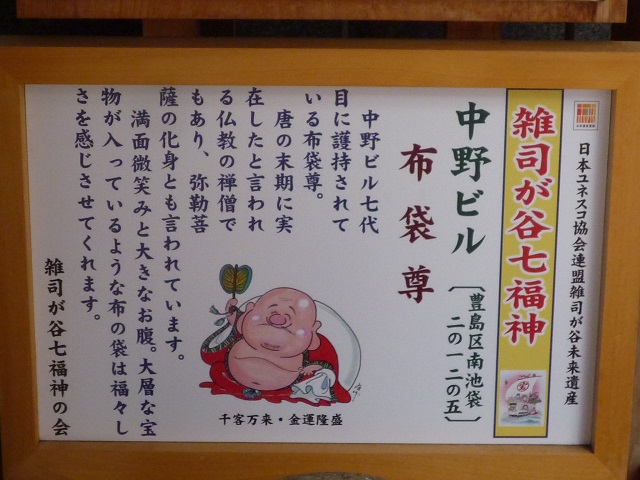 日本ユネスコ協会連盟雑司が谷未来遺産
雑司が谷七福神
中野ビル
〔豊島区南池袋
二ー十二ー五〕
布袋尊
中野ビル七代
目に護持されて
いる布袋尊。
唐の末期に実
在したと言われ
る仏教の禅僧で
もあり、弥勒菩
薩の化身とも言われています。
満面微笑みと大きなお腹。大層な宝
物が入っているような布の袋は福々し
さを感じさせてくれます。
雑司が谷七福神の会
千客万来・金運隆盛